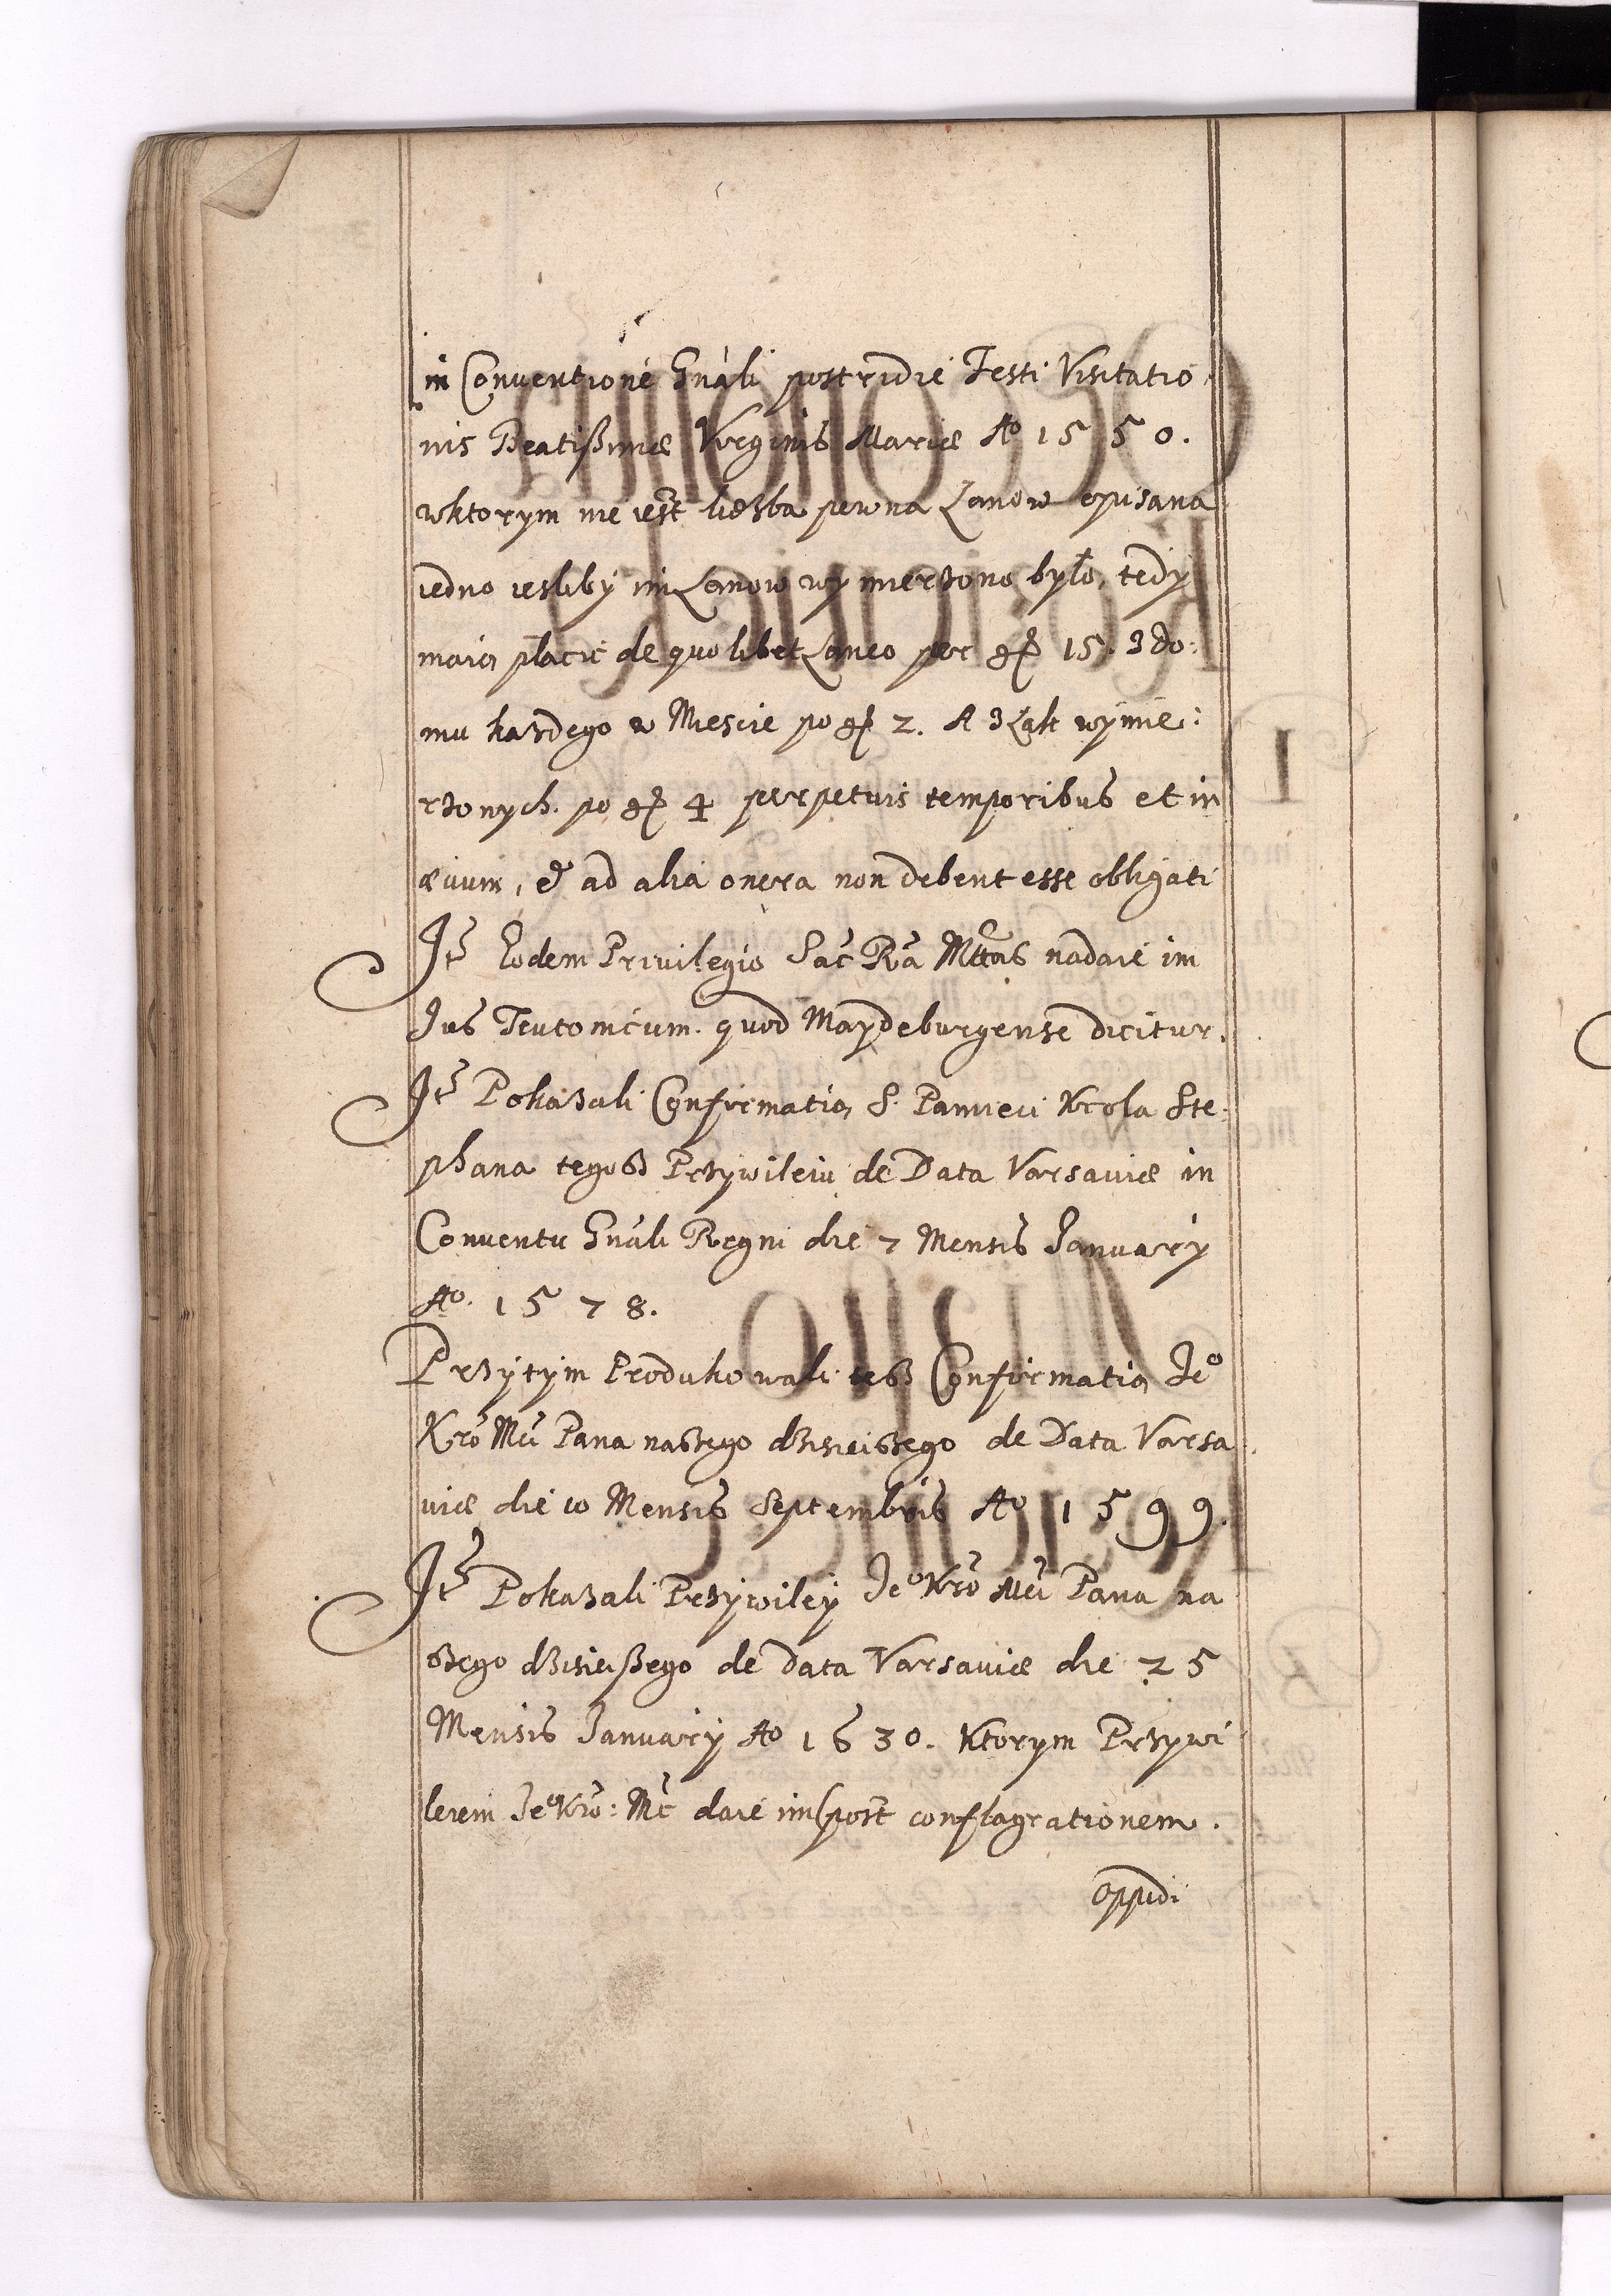 in Conuentione Gnali postridie Festi Visitatio
nis Beatißimæ Virginis Mariæ Ao 1550.
wktorym nie iest liczba pewna Łanow opisana
iedno iesliby im Łanow wymierzono było, tedy
maią płacic de quolibet Laneo per gr 15. z do:
mu kazdego w Miescie po gr 2. A z Łąk wymie:
rzonych. po gr 4 perpetuis temporibus et in
æuum, & ad alia onera non debent esse obligati
Jt Eodem Privilegio Sac Ra Mttas nadaie im
Jus Teutonicum. quod Maydeburgense dicitur.
Jt Pokazali Confirmatią S. Pamieci Krola Ste
phana tegosz Przywileiu de Data Varsauiæ in
Conuentu Gnali Regni die 7 Mensis January
Ao. 1578.
Przytym Produkowali tesz Confirmatią Jeo
Kro Mci Pana naszego dzisieiszego de Data Varsa
uiæ die 10 Mensis Septembris Ao 1599.
Jt Pokazali Przywiley Jeo Kro Mci Pana na
szego dzisieißego de Data Varsauiæ die 25
Mensis January Ao 1630. Ktorym Przywi
leiem Jeo Kro: Mc daie im (post conflagrationem.
Oppidi